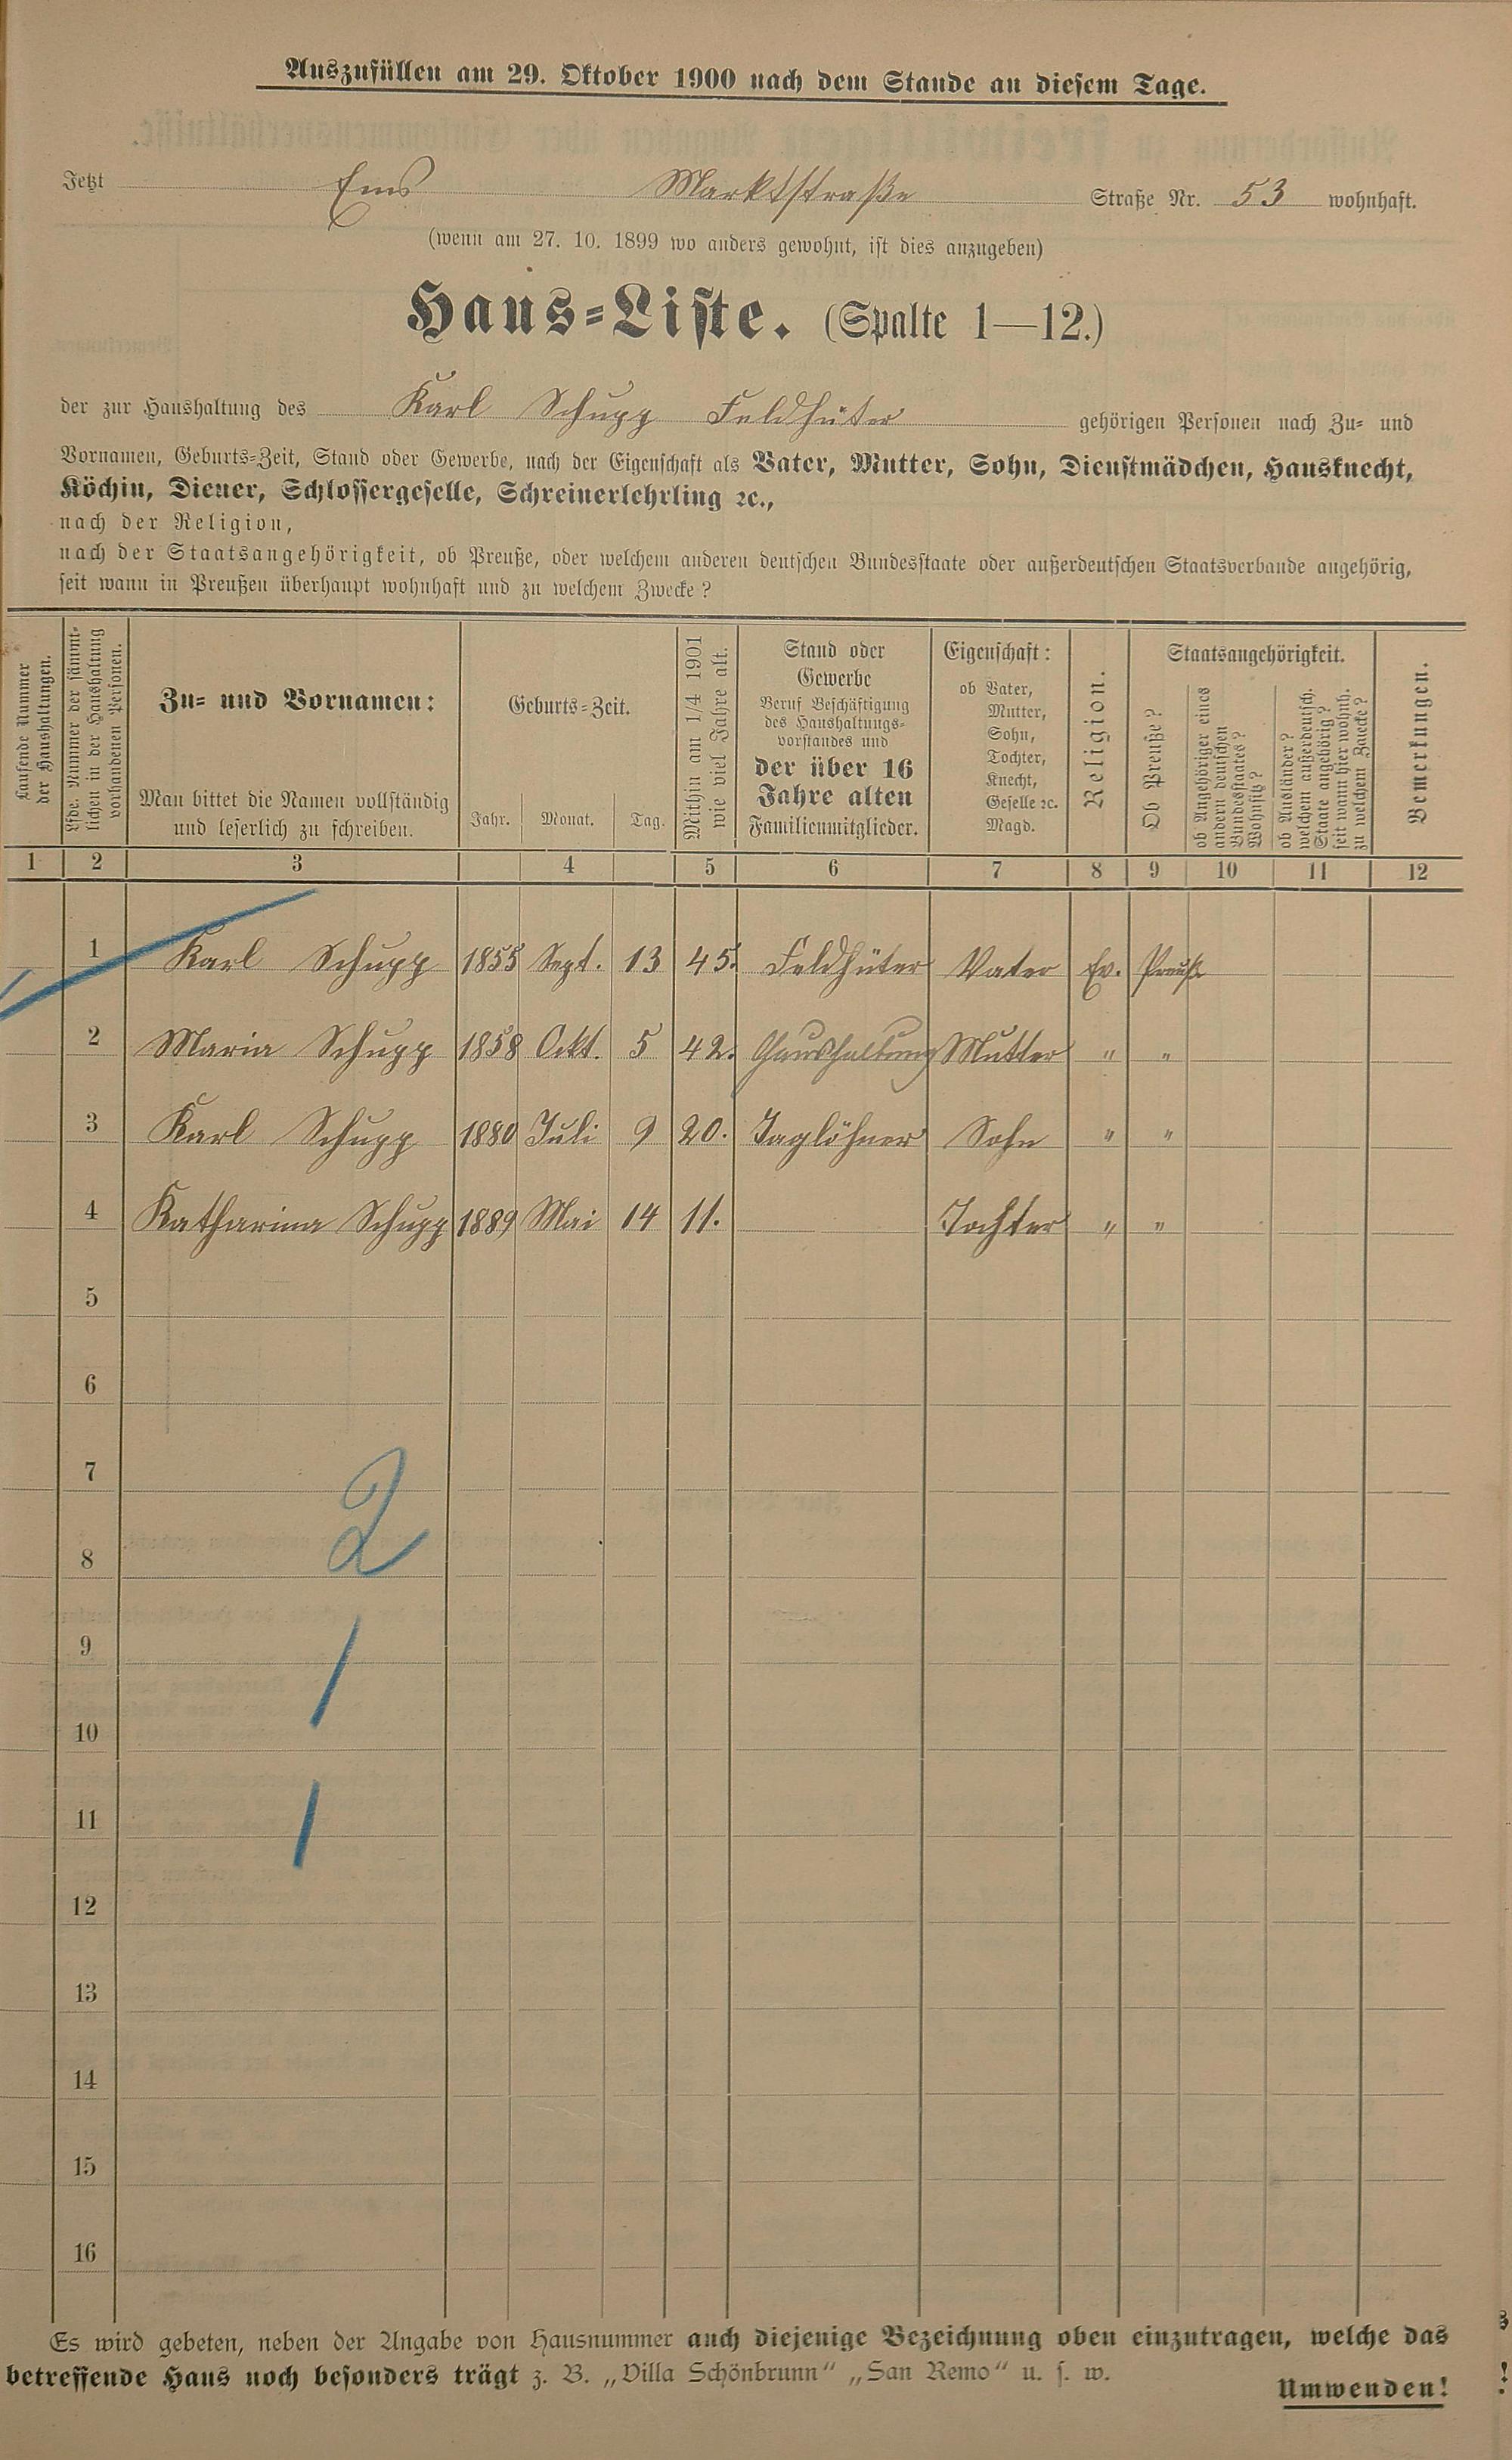 Auszufüllen am 29. Oktober 1900 nach dem Stande an diesem Tage.
Jetzt Ems Marktstraße Straße Nr. 53 wohnhaft.
(wenn am 27. 10. 1899 wo anders gewohnt, ist dies anzugeben)
Haus-Liste. (Spalte 1—12.)
der zur Haushaltung des Karl Schupp Feldhüter gehörigen Personen nach Zu- und
Vornamen, Geburts-Zeit, Stand oder Gewerbe, nach der Eigenschaft als Vater, Mutter, Sohn, Dienstmädchen, Hausknecht,
Köchin, Diener, Schlossergeselle, Schreinerlehrling ꝛc.,
nach der Religion,
nach der Staatsangehörigkeit, ob Preuße, oder welchem anderen deutschen Bundesstaate oder außerdeutschen Staatsverbande angehörig,
seit wann in Preußen überhaupt wohnhaft und zu welchem Zwecke?
Laufende Nummer
der Haushaltungen.
Lfde. Nummer der sämmt-
lichen in der Haushaltung
vorhandenen Personen.
Zu- und Vornamen:
Man bittet die Namen vollständig
und leserlich zu schreiben.
Geburts-Zeit.
Jahr. Monat. Tag.
Mithin am 1/4 1901
wie viel Jahre alt.
Stand oder
Gewerbe
Beruf Beschäftigung
des Haushaltungs-
vorstandes und
der über 16
Jahre alten
Familienmitglieder.
Eigenschaft:
ob Vater,
Mutter,
Sohn,
Tochter,
Knecht,
Geselle ꝛc.
Magd.
Religion.
Staatsangehörigkeit.
Ob Preuße?
ob Angehöriger eines
andern deutschen
Bundesstaates?
Wohnsitz?
ob Ausländer?
welchem außerdeutsch.
Staate angehörig?
seit wann hier wohnh.
zu welchem Zwecke?
Bemerkungen.
1 2 3 4 5 6 7 8 9 10 11 12
1 Karl Schupp 1855 Sept. 13 45. Feldhüter Vater Ev. Preuß
2 Maria Schupp 1858 Okt. 5 42. Haushaltung Mutter " "
3 Karl Schupp 1880 Juli 9 20. Taglöhner Sohn " "
4 Katharina Schupp 1889 Mai 14 11. Tochter " "
5
6
7
2
8
9
10
11
12
13
14
15
16
Es wird gebeten, neben der Angabe von Hausnummer auch diejenige Bezeichnung oben einzutragen, welche das
betreffende Haus noch besonders trägt z. B. „Villa Schönbrunn“ „San Remo“ u. s. w.
Umwenden!